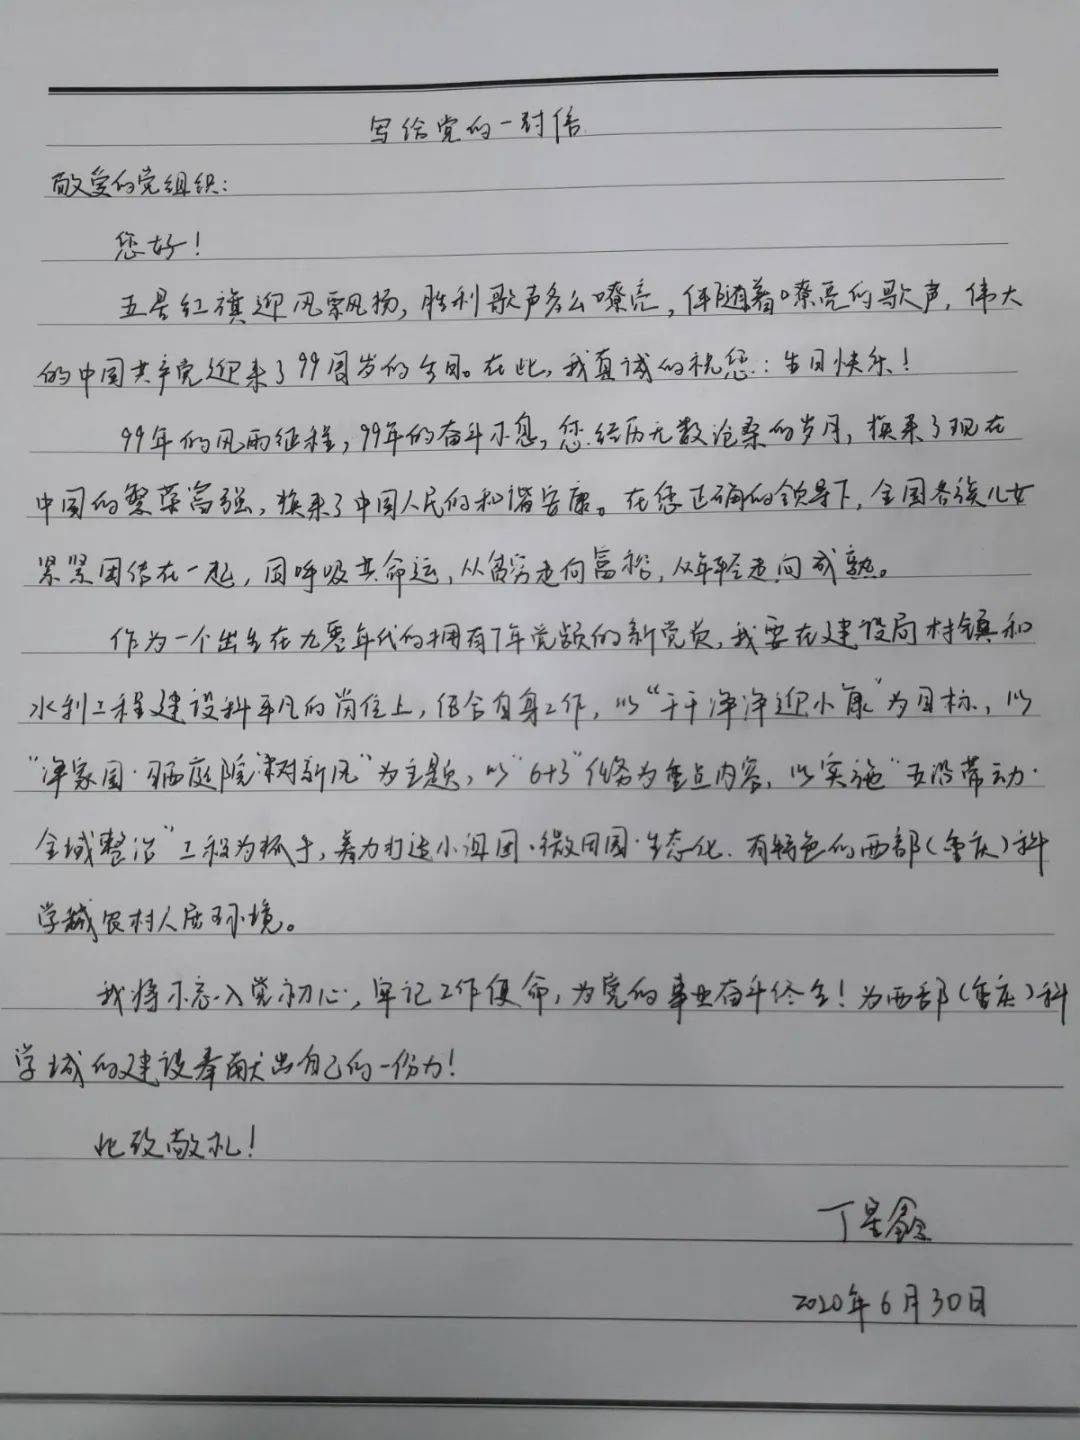 写给党的一封信
敬爱的党组织：
您好！
五星红旗迎风飘扬，胜利歌声多么嘹亮，伴随着嘹亮的歌声，伟大
的中国共产党迎来了99周岁的生日。在此，我真诚的祝您：生日快乐！
99年的风雨征程，99年的奋斗不息，您经历无数沧桑的岁月，换来了现在
中国的繁荣富强，换来了中国人民的和谐安康。在您正确的领导下，全国各族儿女
紧紧团结在一起，同呼吸共命运，从贫穷走向富裕，从年轻走向成熟。
作为一个出生在九零年代的拥有7年党龄的新党员，我要在建设局村镇和
水利工程建设科平凡的岗位上，结合自身工作，以“干干净净迎小康”为目标，以
“净家园·晒庭院·树新风”为主题，以“6+3”任务为重点内容，以实施“五沿带动·
全域整治”工程为抓手，着力打造小组团·微田园·生态化·有特色的西部（重庆）科
学城农村人居环境。
我将不忘入党初心，牢记工作使命，为党的事业奋斗终生！为西部（重庆）科
学城的建设奉献出自己的一份力！
此致敬礼！
丁星鑫
2020年6月30日